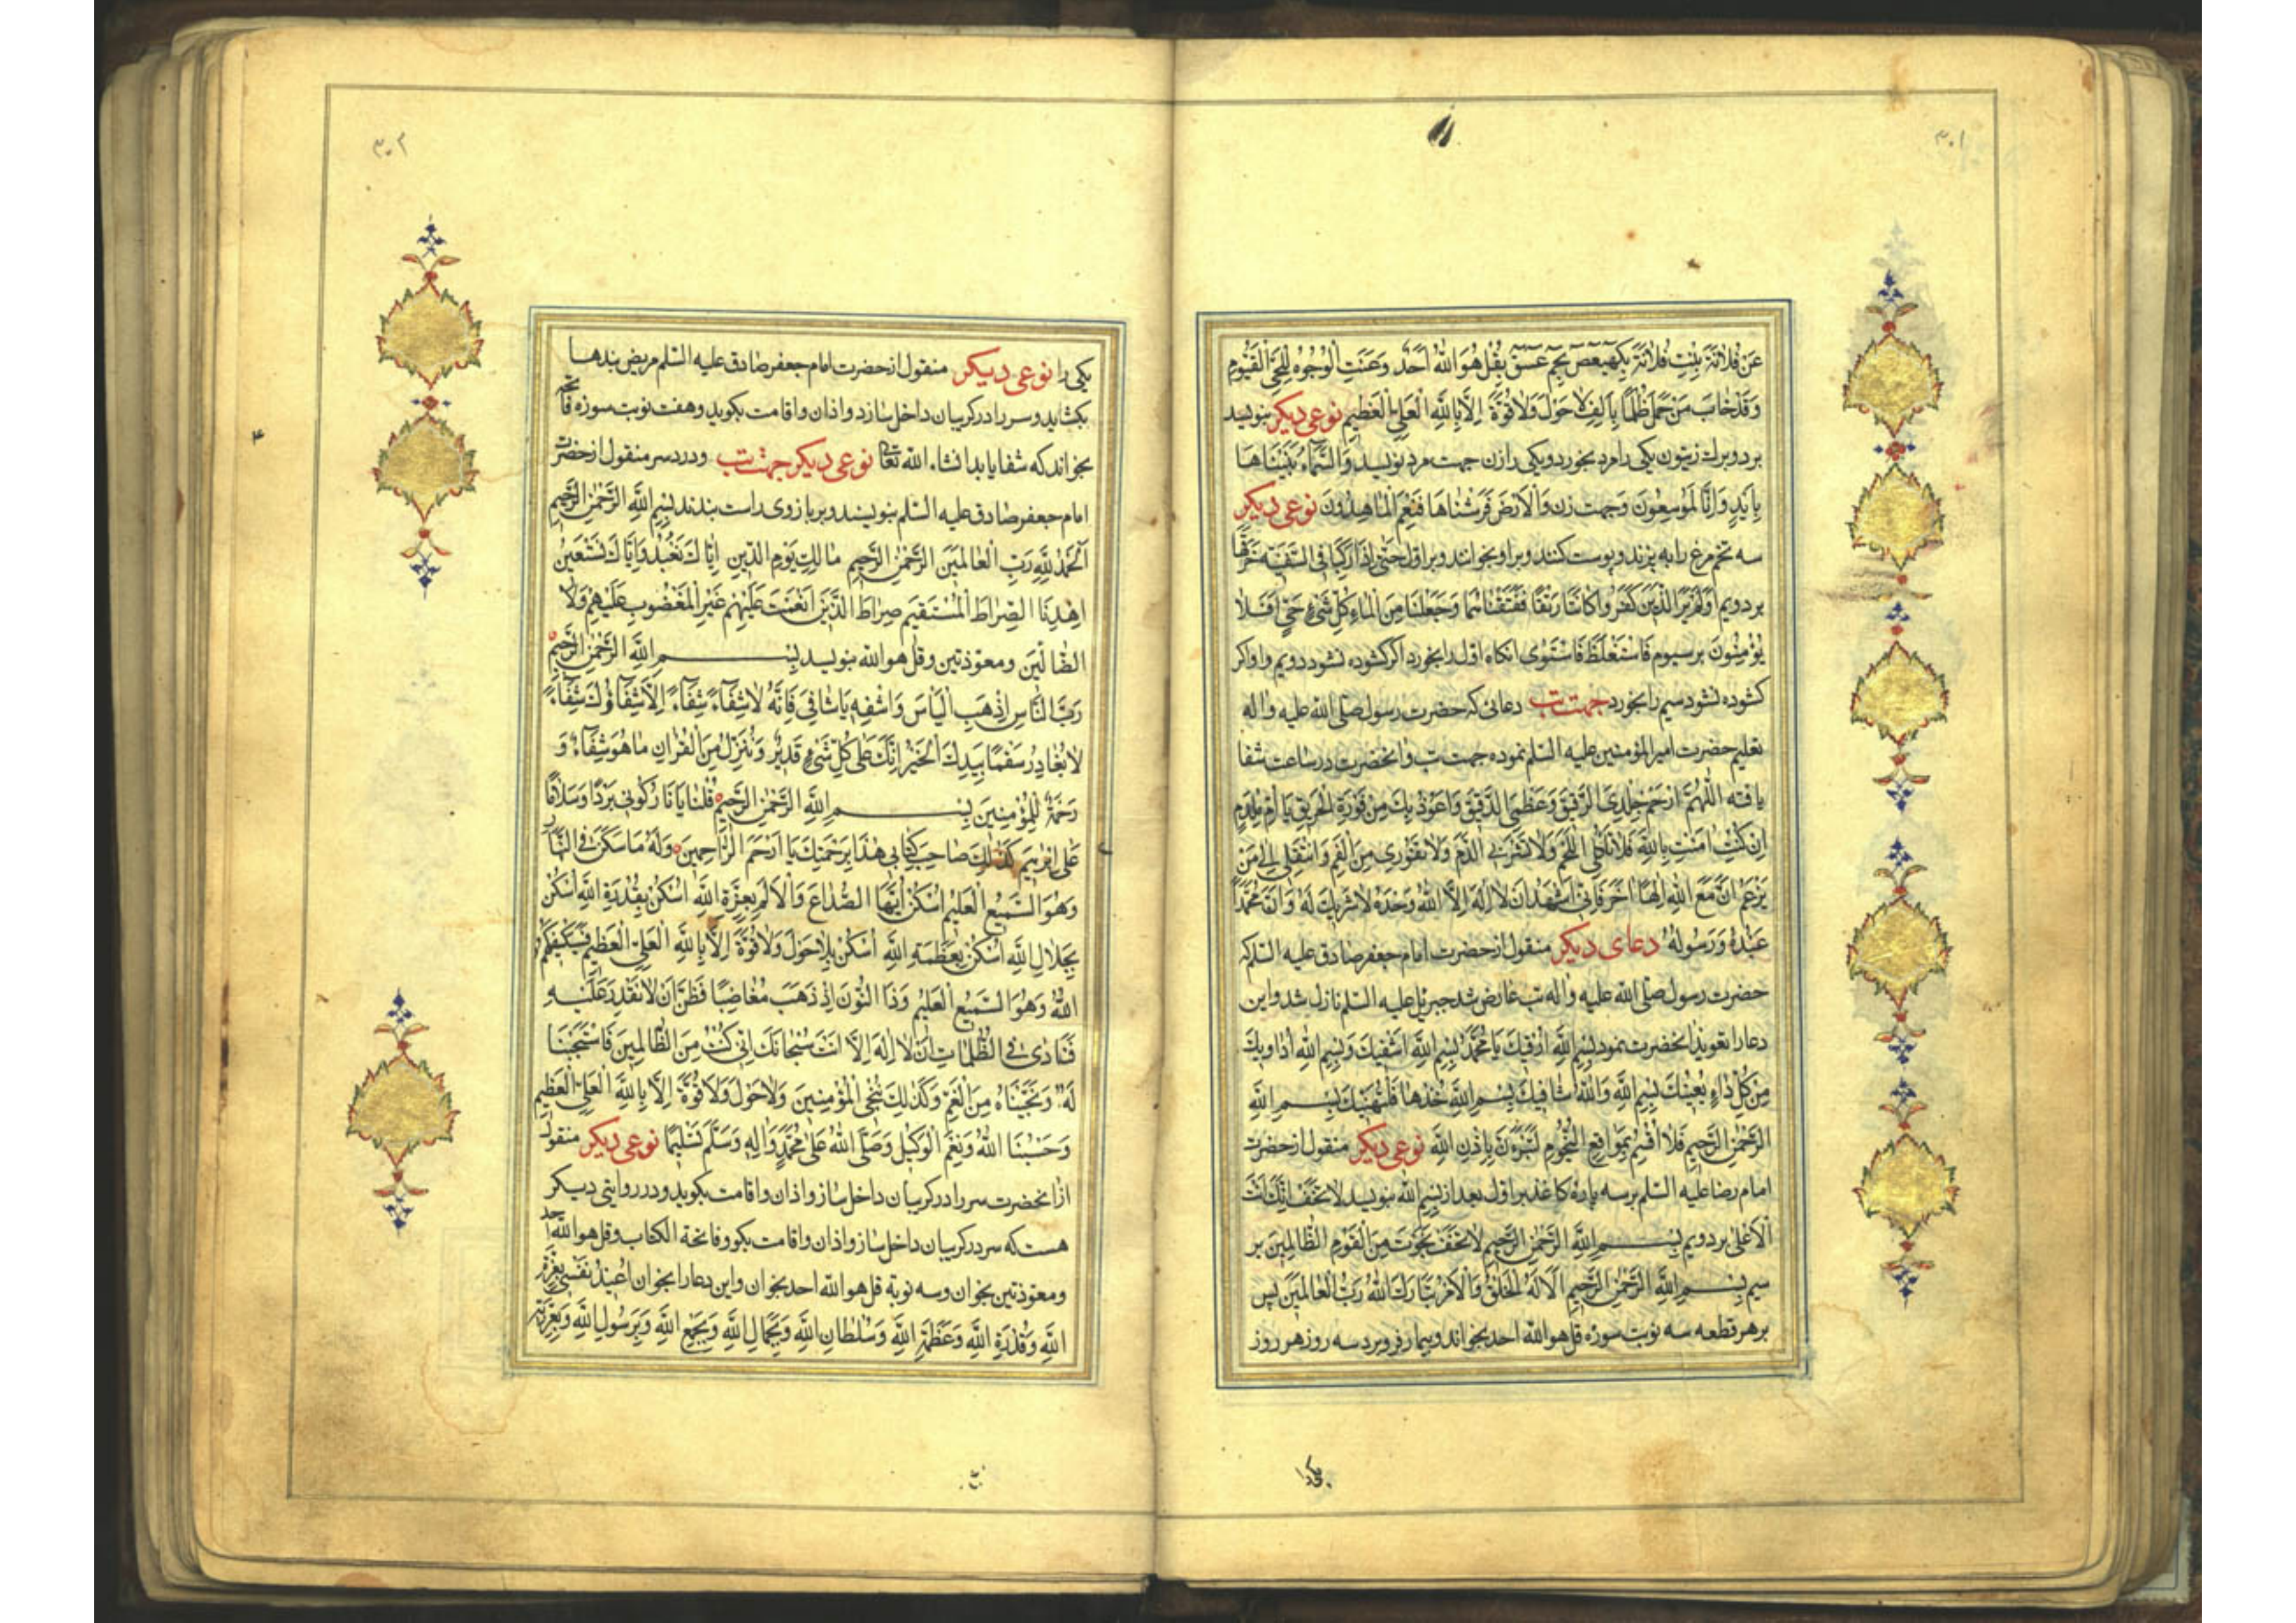 ۳۰۱
عَنْ فُلَانَةَ بِنْتِ فُلَانَةَ بِكهيعص بِحم عسق بِقُلْ هُوَ اللّٰهُ اَحَدٌ وَعَنَتِ الْوُجُوهُ لِلْحَيِّ الْقَيُّومِ
وَقَدْ خَابَ مَنْ حَمَلَ ظُلْمًا بِاَلْفِ لَا حَوْلَ وَلَا قُوَّةَ اِلَّا بِاللّٰهِ الْعَلِيِّ الْعَظِيمِ نوعی دیکر بنویسد
بر دو برك زیتون یکی را مرد بخورد و یکی را زن جهت مرد نویسد وَالسَّمَاءَ بَنَيْنَاهَا
بِاَيْدٍ وَاِنَّا لَمُوسِعُونَ وَجهت زن وَالْاَرْضَ فَرَشْنَاهَا فَنِعْمَ الْمَاهِدُونَ نوعی دیکر
سه تخم مرغ را به پزند و پوست کنند و بر او بخوانند و بر اول حَتّٰى اِذَا رَكِبَا فِى السَّفِينَةِ خَرَقَهَا
بر دویم اَوَلَمْ يَرَ الَّذِينَ كَفَرُوا كَانَتَا رَتْقًا فَفَتَقْنَاهُمَا وَجَعَلْنَا مِنَ الْمَاءِ كُلَّ شَىْءٍ حَىٍّ اَفَلَا
يُؤْمِنُونَ بر سیوم فَاسْتَغْلَظَ فَاسْتَوٰى انکاه اول را بخورد اکر کشوده نشود دویم و اکر
کشوده نشود سیم را بخورد جهت تب دعائی که حضرت رسول صلی الله علیه واله
تعلیم حضرت امیر المؤمنین علیه السلم نموده جهت تب وانحضرت در ساعت شفا
یافته اَللّٰهُمَّ ارْحَمْ جِلْدِىَ الرَّقِيقَ وَعَظْمِىَ الدَّقِيقَ وَاَعُوذُ بِكَ مِنْ فَوْرَةِ الْحَرِيقِ يَا اُمَّ مِلْدَمٍ
اِنْ كُنْتِ اٰمَنْتِ بِاللّٰهِ فَلَا تَأْكُلِى اللَّحْمَ وَلَا تَشْرَبِى الدَّمَ وَلَا تَفُورِى مِنَ الْفَمِ وَانْتَقِلِى اِلٰى مَنْ
يَزْعَمُ اَنَّ مَعَ اللّٰهِ اِلٰهًا اٰخَرَ فَاِنِّى اَشْهَدُ اَنْ لَا اِلٰهَ اِلَّا اللّٰهُ وَحْدَهُ لَا شَرِيكَ لَهُ وَاَنَّ مُحَمَّدًا
عَبْدُهُ وَرَسُولُهُ دعای دیکر منقول از حضرت امام جعفر صادق علیه السلم که
حضرت رسول صلی الله علیه واله تب عارض شد جبرئیل علیه السلم نازل شد و این
دعا را تعویذ انحضرت نمود بِسْمِ اللّٰهِ اَرْقِيكَ يَا مُحَمَّدُ بِسْمِ اللّٰهِ اَشْفِيكَ وَبِسْمِ اللّٰهِ اُدَاوِيكَ
مِنْ كُلِّ دَاءٍ يُعْيِيكَ بِسْمِ اللّٰهِ وَاللّٰهُ شَافِيكَ بِسْمِ اللّٰهِ خُذْهَا فَلْتَهْنِيكَ بِسْمِ اللّٰهِ
الرَّحْمٰنِ الرَّحِيمِ فَلَا اُقْسِمُ بِمَوَاقِعِ النُّجُومِ لَتَبْرَأَنَّ بِاِذْنِ اللّٰهِ نوعی دیکر منقول از حضرت
امام رضا علیه السلم بر سه پارۀ کاغذ بر اول بعد از بسم الله بنویسد لَا تَخَفْ اِنَّكَ اَنْتَ
الْاَعْلٰى بر دویم بِسْمِ اللّٰهِ الرَّحْمٰنِ الرَّحِيمِ لَا تَخَفْ نَجَوْتَ مِنَ الْقَوْمِ الظَّالِمِينَ بر
سیم بِسْمِ اللّٰهِ الرَّحْمٰنِ الرَّحِيمِ اَلَا لَهُ الْخَلْقُ وَالْاَمْرُ تَبَارَكَ اللّٰهُ رَبُّ الْعَالَمِينَ پس
بر هر قطعه سه نوبت سورۀ قل هو الله احد بخواند و بیمار فرو برد سه روز هر روز
یکی را
۳۰۲
یکی را نوعی دیکر منقول از حضرت امام جعفر صادق علیه السلم مریض بندها
بکشاید و سر را در کریبان داخل سازد و اذان و اقامت بکوید و هفت نوبت سوره فاتحه
بخواند که شفا یابد انشاء الله تعالی نوعی دیکر جهت تب و درد سر منقول از حضرت
امام جعفر صادق علیه السلم بنویسند و بر بازوی راست بندند بِسْمِ اللّٰهِ الرَّحْمٰنِ الرَّحِيمِ
اَلْحَمْدُ لِلّٰهِ رَبِّ الْعَالَمِينَ الرَّحْمٰنِ الرَّحِيمِ مَالِكِ يَوْمِ الدِّينِ اِيَّاكَ نَعْبُدُ وَاِيَّاكَ نَسْتَعِينُ
اِهْدِنَا الصِّرَاطَ الْمُسْتَقِيمَ صِرَاطَ الَّذِينَ اَنْعَمْتَ عَلَيْهِمْ غَيْرِ الْمَغْضُوبِ عَلَيْهِمْ وَلَا
الضَّالِّينَ ومعوذتین وقل هو الله بنویسد بِسْمِ اللّٰهِ الرَّحْمٰنِ الرَّحِيمِ
رَبَّ النَّاسِ اِذْهَبِ الْبَأْسَ وَاشْفِهِ يَا شَافِى فَاِنَّهُ لَا شِفَاءَ شِفَاءً اِلَّا شِفَاؤُكَ شِفَاءً
لَا يُغَادِرُ سَقَمًا بِيَدِكَ الْخَيْرُ اِنَّكَ عَلٰى كُلِّ شَىْءٍ قَدِيرٌ وَنُنَزِّلُ مِنَ الْقُرْاٰنِ مَا هُوَ شِفَاءٌ وَ
رَحْمَةٌ لِلْمُؤْمِنِينَ بِسْمِ اللّٰهِ الرَّحْمٰنِ الرَّحِيمِ قُلْنَا يَا نَارُ كُونِى بَرْدًا وَسَلَامًا
عَلٰى اِبْرٰهِيمَ كَذٰلِكَ صَاحِبَ كِتَابِى هٰذَا بِرَحْمَتِكَ يَا اَرْحَمَ الرَّاحِمِينَ وَلَهُ مَا سَكَنَ فِى النَّهَارِ
وَهُوَ السَّمِيعُ الْعَلِيمُ اُسْكُنْ اَيُّهَا الصُّدَاعُ وَالْاَلَمُ بِعِزَّةِ اللّٰهِ اُسْكُنْ بِقُدْرَةِ اللّٰهِ اُسْكُنْ
بِجَلَالِ اللّٰهِ اُسْكُنْ بِعَظَمَةِ اللّٰهِ اُسْكُنْ بِلَا حَوْلَ وَلَا قُوَّةَ اِلَّا بِاللّٰهِ الْعَلِيِّ الْعَظِيمِ فَسَيَكْفِيكَهُمُ
اللّٰهُ وَهُوَ السَّمِيعُ الْعَلِيمُ وَذَا النُّونِ اِذْ ذَهَبَ مُغَاضِبًا فَظَنَّ اَنْ لَا نَقْدِرَ عَلَيْهِ
فَنَادٰى فِى الظُّلُمَاتِ اَنْ لَا اِلٰهَ اِلَّا اَنْتَ سُبْحَانَكَ اِنِّى كُنْتُ مِنَ الظَّالِمِينَ فَاسْتَجَبْنَا
لَهُ وَنَجَّيْنَاهُ مِنَ الْغَمِّ وَكَذٰلِكَ نُنْجِى الْمُؤْمِنِينَ وَلَا حَوْلَ وَلَا قُوَّةَ اِلَّا بِاللّٰهِ الْعَلِيِّ الْعَظِيمِ
وَحَسْبُنَا اللّٰهُ وَنِعْمَ الْوَكِيلُ وَصَلَّى اللّٰهُ عَلٰى مُحَمَّدٍ وَاٰلِهِ وَسَلَّمَ تَسْلِيمًا نوعی دیکر منقول
از انحضرت سر را در کریبان داخل ساز و اذان و اقامت بکوید و در روایتی دیکر
هست که سر در کریبان داخل ساز و اذان و اقامت بکو و فاتحة الکتاب وقل هو الله احد
ومعوذتین بخوان وسه نوبة قل هو الله احد بخوان و این دعا را بخوان اُعِيذُ نَفْسِى بِعِزَّةِ
اللّٰهِ وَقُدْرَةِ اللّٰهِ وَعَظَمَةِ اللّٰهِ وَسُلْطَانِ اللّٰهِ وَبِجَمَالِ اللّٰهِ وَبِجَمْعِ اللّٰهِ وَبِرَسُولِ اللّٰهِ وَبِعِتْرَتِهِ